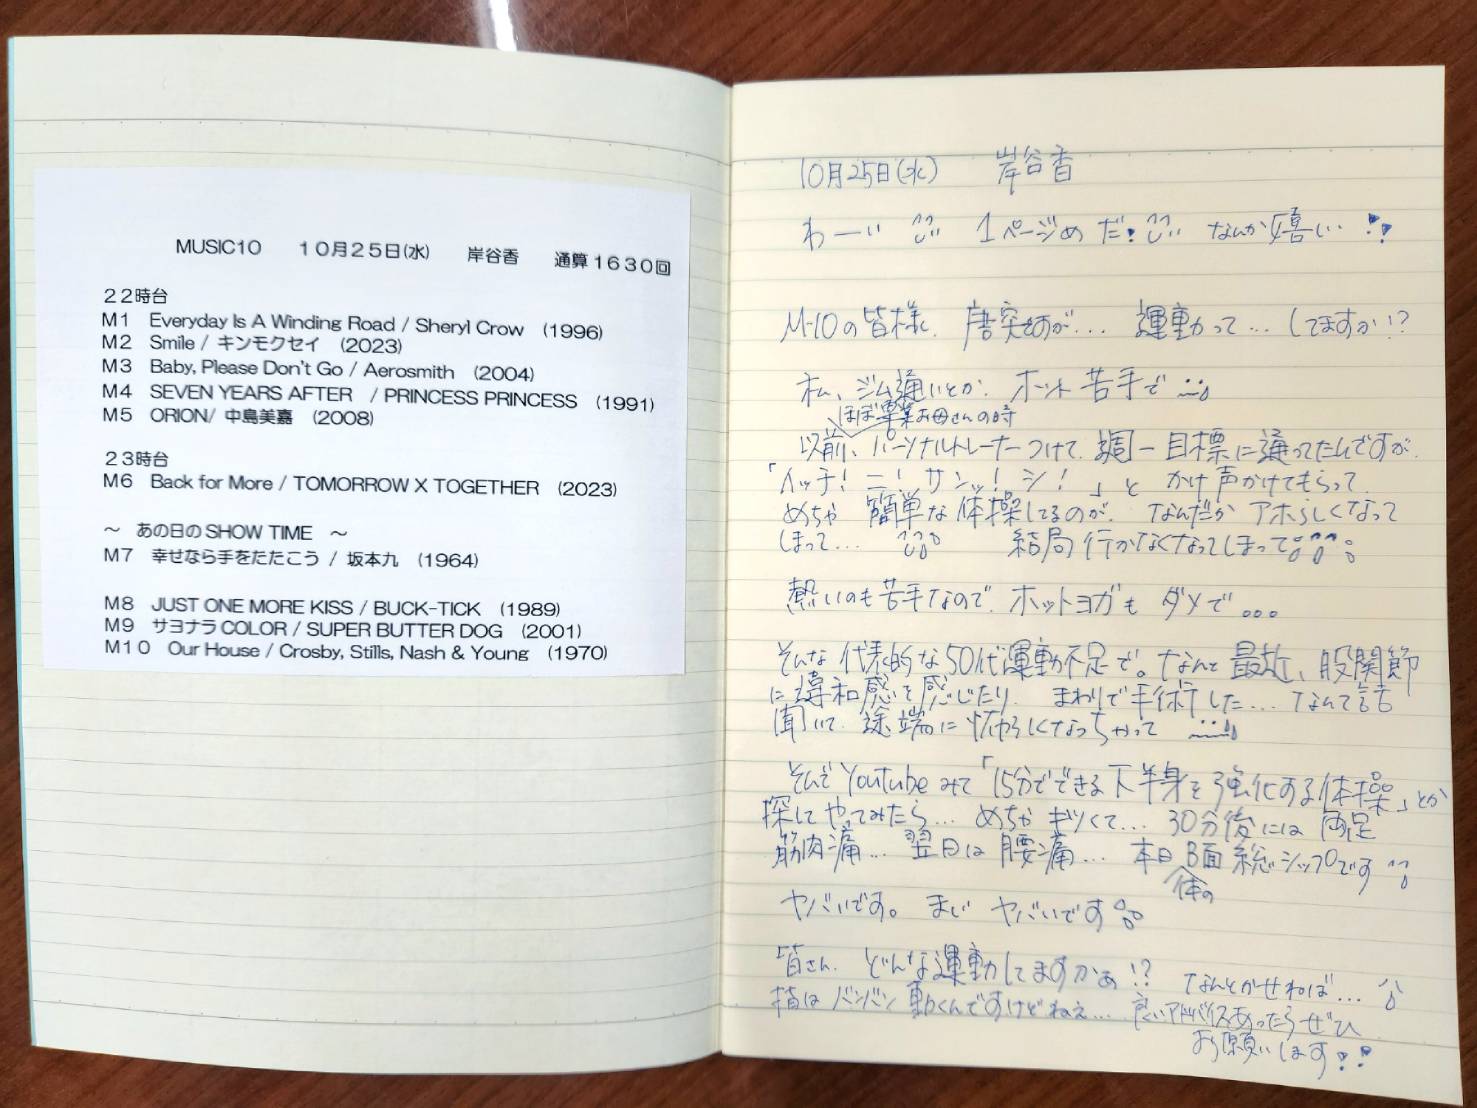 MUSIC10 10月25日(水) 岸谷香 通算1630回
22時台
M1 Everyday Is A Winding Road / Sheryl Crow (1996)
M2 Smile / キンモクセイ (2023)
M3 Baby, Please Don't Go / Aerosmith (2004)
M4 SEVEN YEARS AFTER / PRINCESS PRINCESS (1991)
M5 ORION/ 中島美嘉 (2008)
23時台
M6 Back for More / TOMORROW X TOGETHER (2023)
～ あの日のSHOW TIME ～
M7 幸せなら手をたたこう / 坂本九 (1964)
M8 JUST ONE MORE KISS / BUCK-TICK (1989)
M9 サヨナラCOLOR / SUPER BUTTER DOG (2001)
M10 Our House / Crosby, Stills, Nash & Young (1970)
10月25日(水) 岸谷香
わーい 1ページめだ! なんか嬉しい!!
M-10の皆様、唐突ですが... 運動って... してますか!?
私、ジム通いとか、ホント苦手で
ほぼ専業お母さんの時
以前、パーソナルトレーナーつけて、週一目標に通ってたんですが、
「イッチ! ニ! サンッ! シ! 」と かけ声かけてもらって、
めちゃ 簡単な体操してるのが、なんだか アホらしくなって
しまって... 結局 行かなくなってしまって
熱いのも苦手なので、ホットヨガも ダメで...
そんな 代表的な50代運動不足で。なんと 最近、股関節
に違和感を感じたり、まわりで手術した... なんて話
聞いて、途端に 怖ろしくなっちゃって
そんで Youtubeみて「15分でできる下半身を強化する体操」とか
探して やってみたら... めちゃ キツくて... 30分後には 両足
筋肉痛... 翌日は 腰痛... 本日 B面 総シップです
体の
ヤバいです。まじ ヤバいです
皆さん、どんな運動してますかぁ!? なんとかせねば...
指は バンバン 動くんですけどねぇ... 良いアドバイスあったら ぜひ
お願いします!!